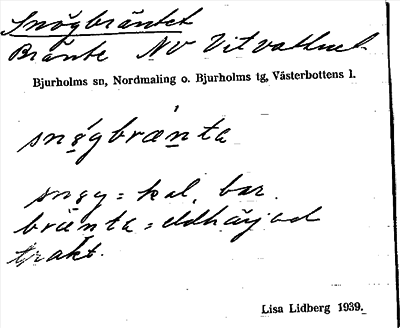 Snögbräntet
Bränte NV Vitvattnet
Bjurholms sn, Nordmaling o. Bjurholms tg, Västerbottens l.
snǿgbrænta
snøg = kal, bar.
bränta = eldhärjad
trakt.
Lisa Lidberg 1939.